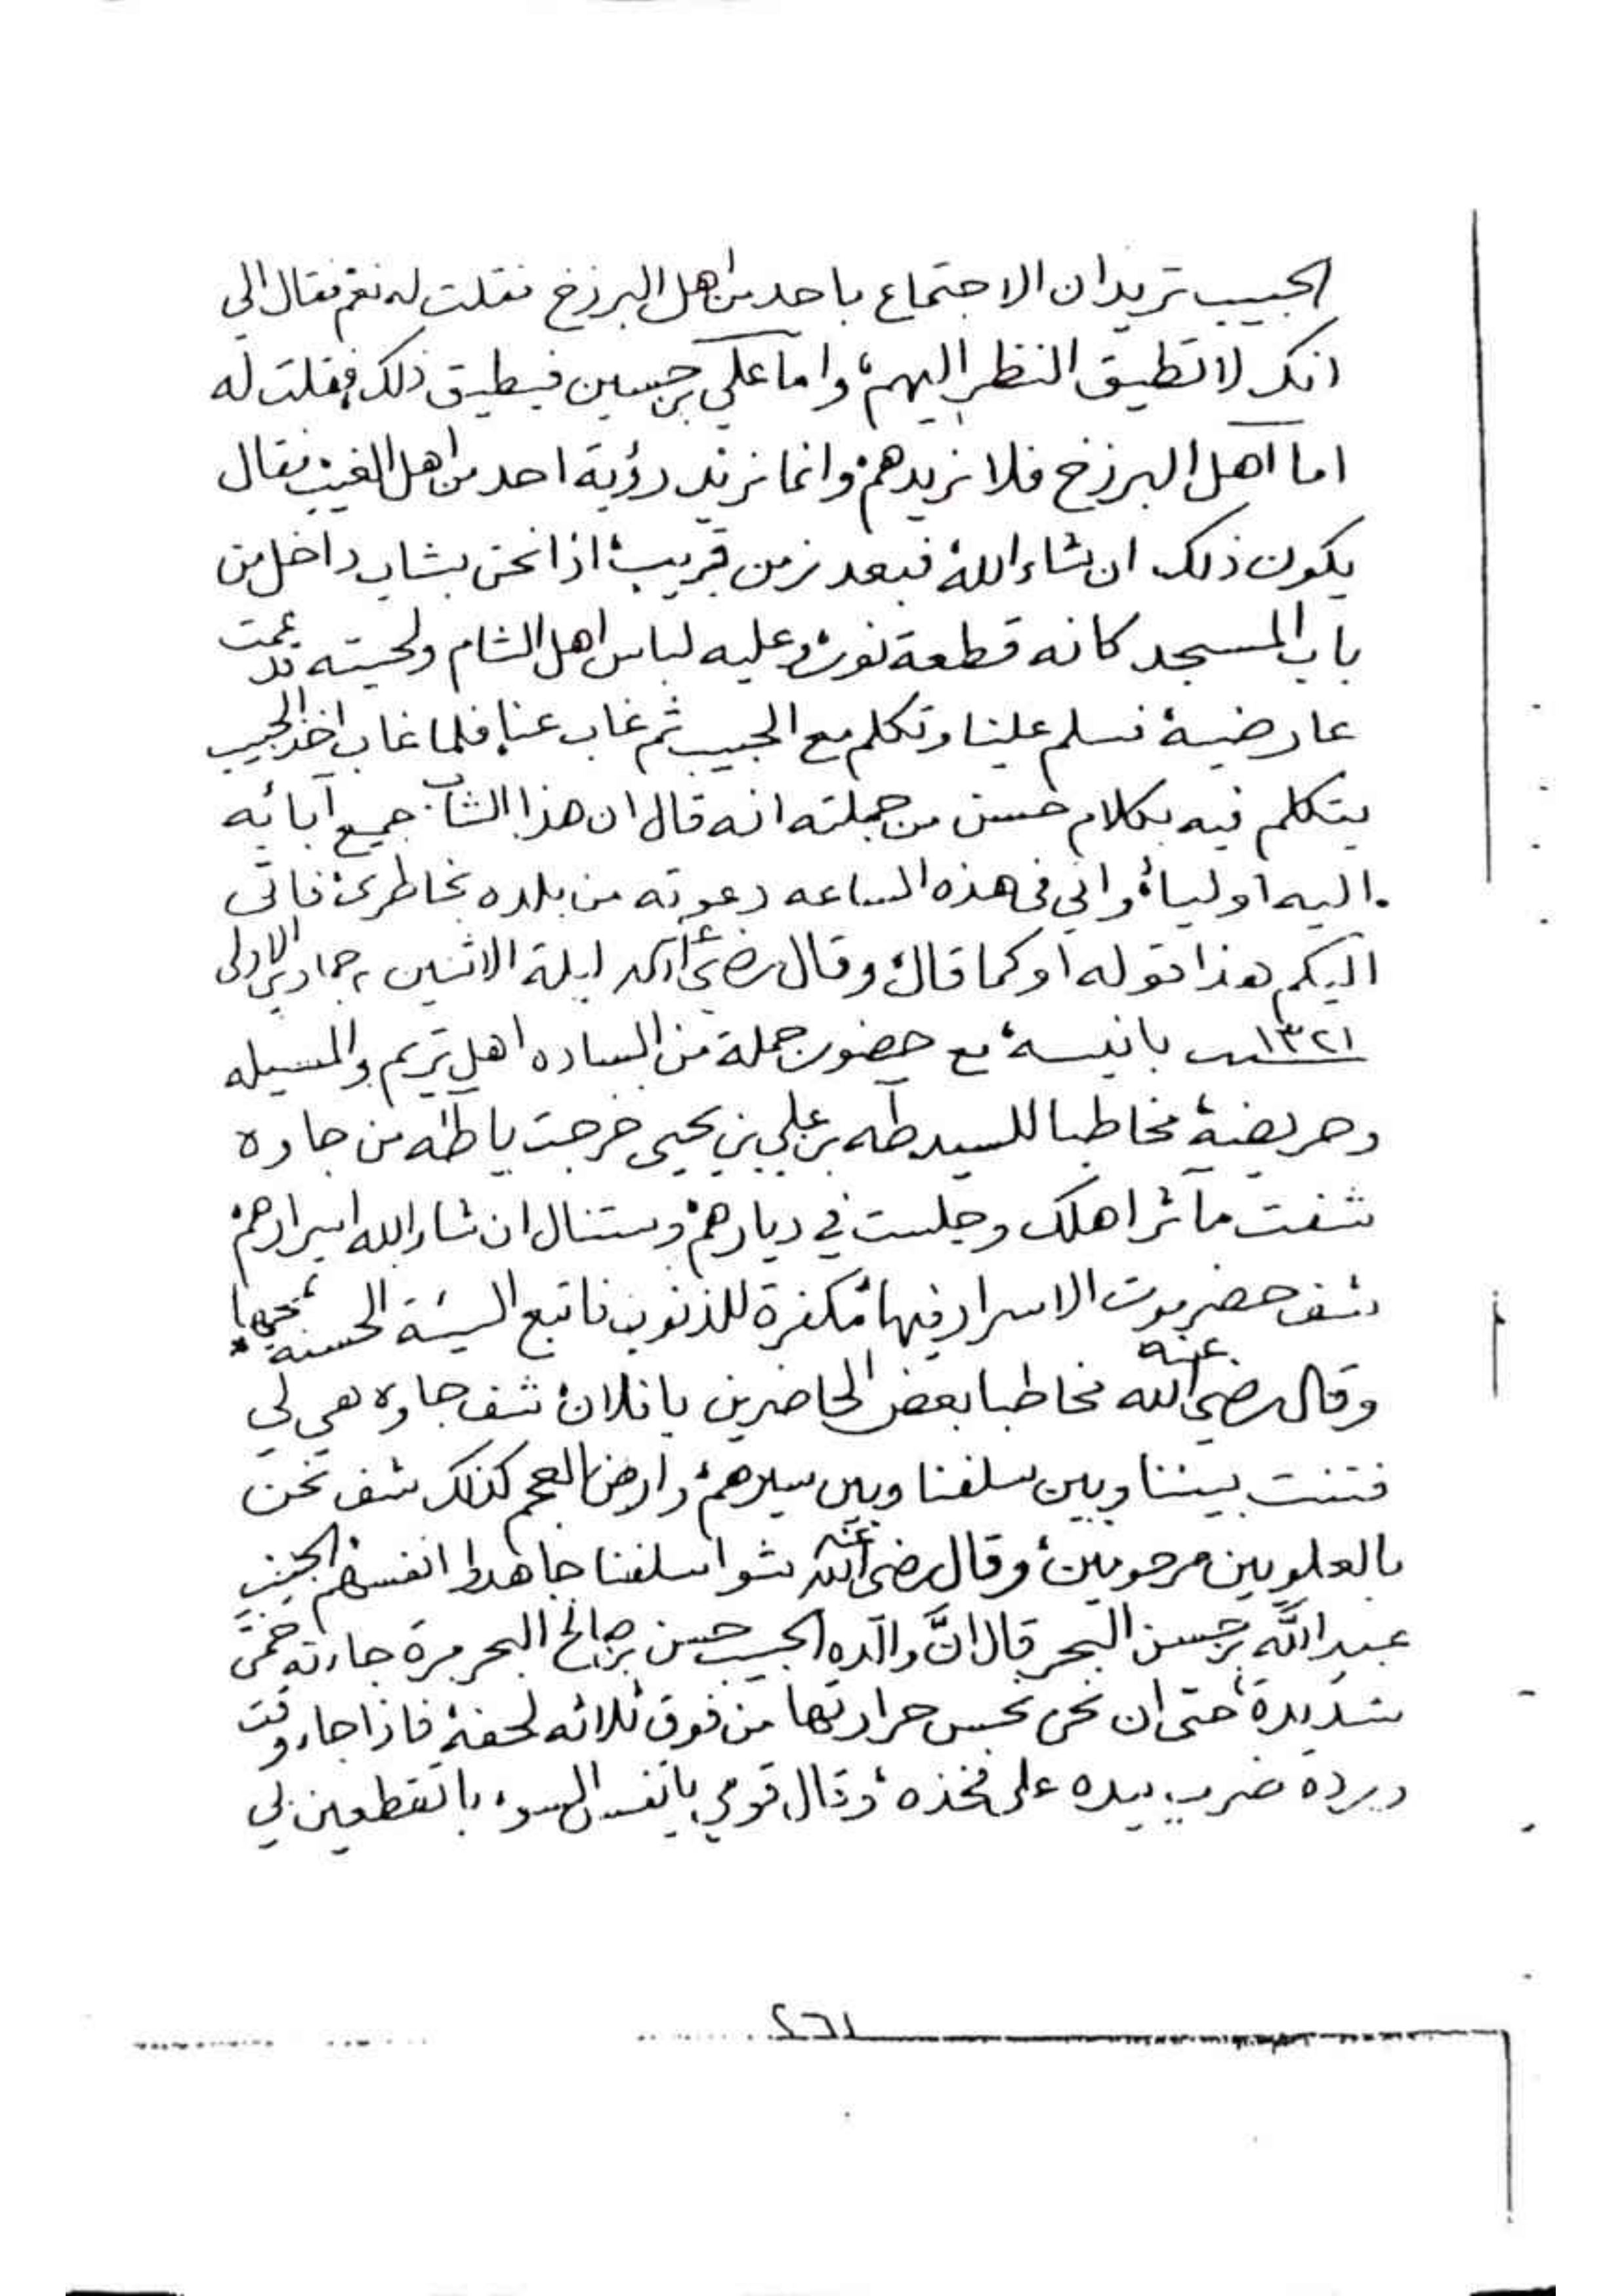 الحبيب تريدان الاجتماع باحد من اهل البرزخ فقلت له نعم فقال الي
انك لا تطيق النظر اليهم، واما علي بن حسين فيطيق ذلك، فقلت له
اما اهل البرزخ فلا نريدهم، وانما نريد رؤية احد من اهل الغيب، فقال
يكون ذلك ان شاء الله، فبعد زمن قريب، اذا نحن بشاب داخل من
باب المسجد كانه قطعة نور، وعليه لباس اهل الشام ولحيته قد عمت
عارضيه، فسلم علينا وتكلم مع الحبيب ثم غاب عنا، فلما غاب اخذ الحبيب
يتكلم فيه بكلام حسن من جملته انه قال ان هذا الشاب جميع آبائه
اليه اولياء، واني في هذه الساعه دعوته من بلده بخاطري، فاتى
اليكم هذا قوله او كما قال، وقال رضي الله ليلة الاثنين جمادى الاولى
١٣٢١ بانيسه، مع حضور جملة من الساده اهل تريم والمسيله
وحريضة، مخاطبا للسيد طه بن علي بن يحيى خرجت يا طه من جاوه
شفت مآثر اهلك وجلست في ديارهم، وستنال ان شاء الله اسرارهم،
شف حضرموت الاسرار فيها، مكفرة للذنوب فاتبع السيئة الحسنة تمحها
وقال رضي الله عنه مخاطبا بعض الحاضرين يا فلان، شف جاوه هي لي
فتنت بيننا وبين سلفنا وبين سيرهم، وارض العجم كذلك شف نحن
بالعلويين مرحومين، وقال رضي الله عنه شوا سلفنا جاهدوا انفسهم الحبيب
عبد الله بن حسن البحر قال انَّ والده الحبيب حسن بن صالح البحر مرة جاءته حمى
شديدة، حتى ان نحن نحس حرارتها من فوق ثلاثه لحفة، فاذا جاء وقت
ورده ضرب بيده على فخذه، وقال قومي يا نفس السوء، با تقطعين لي
٢٦١